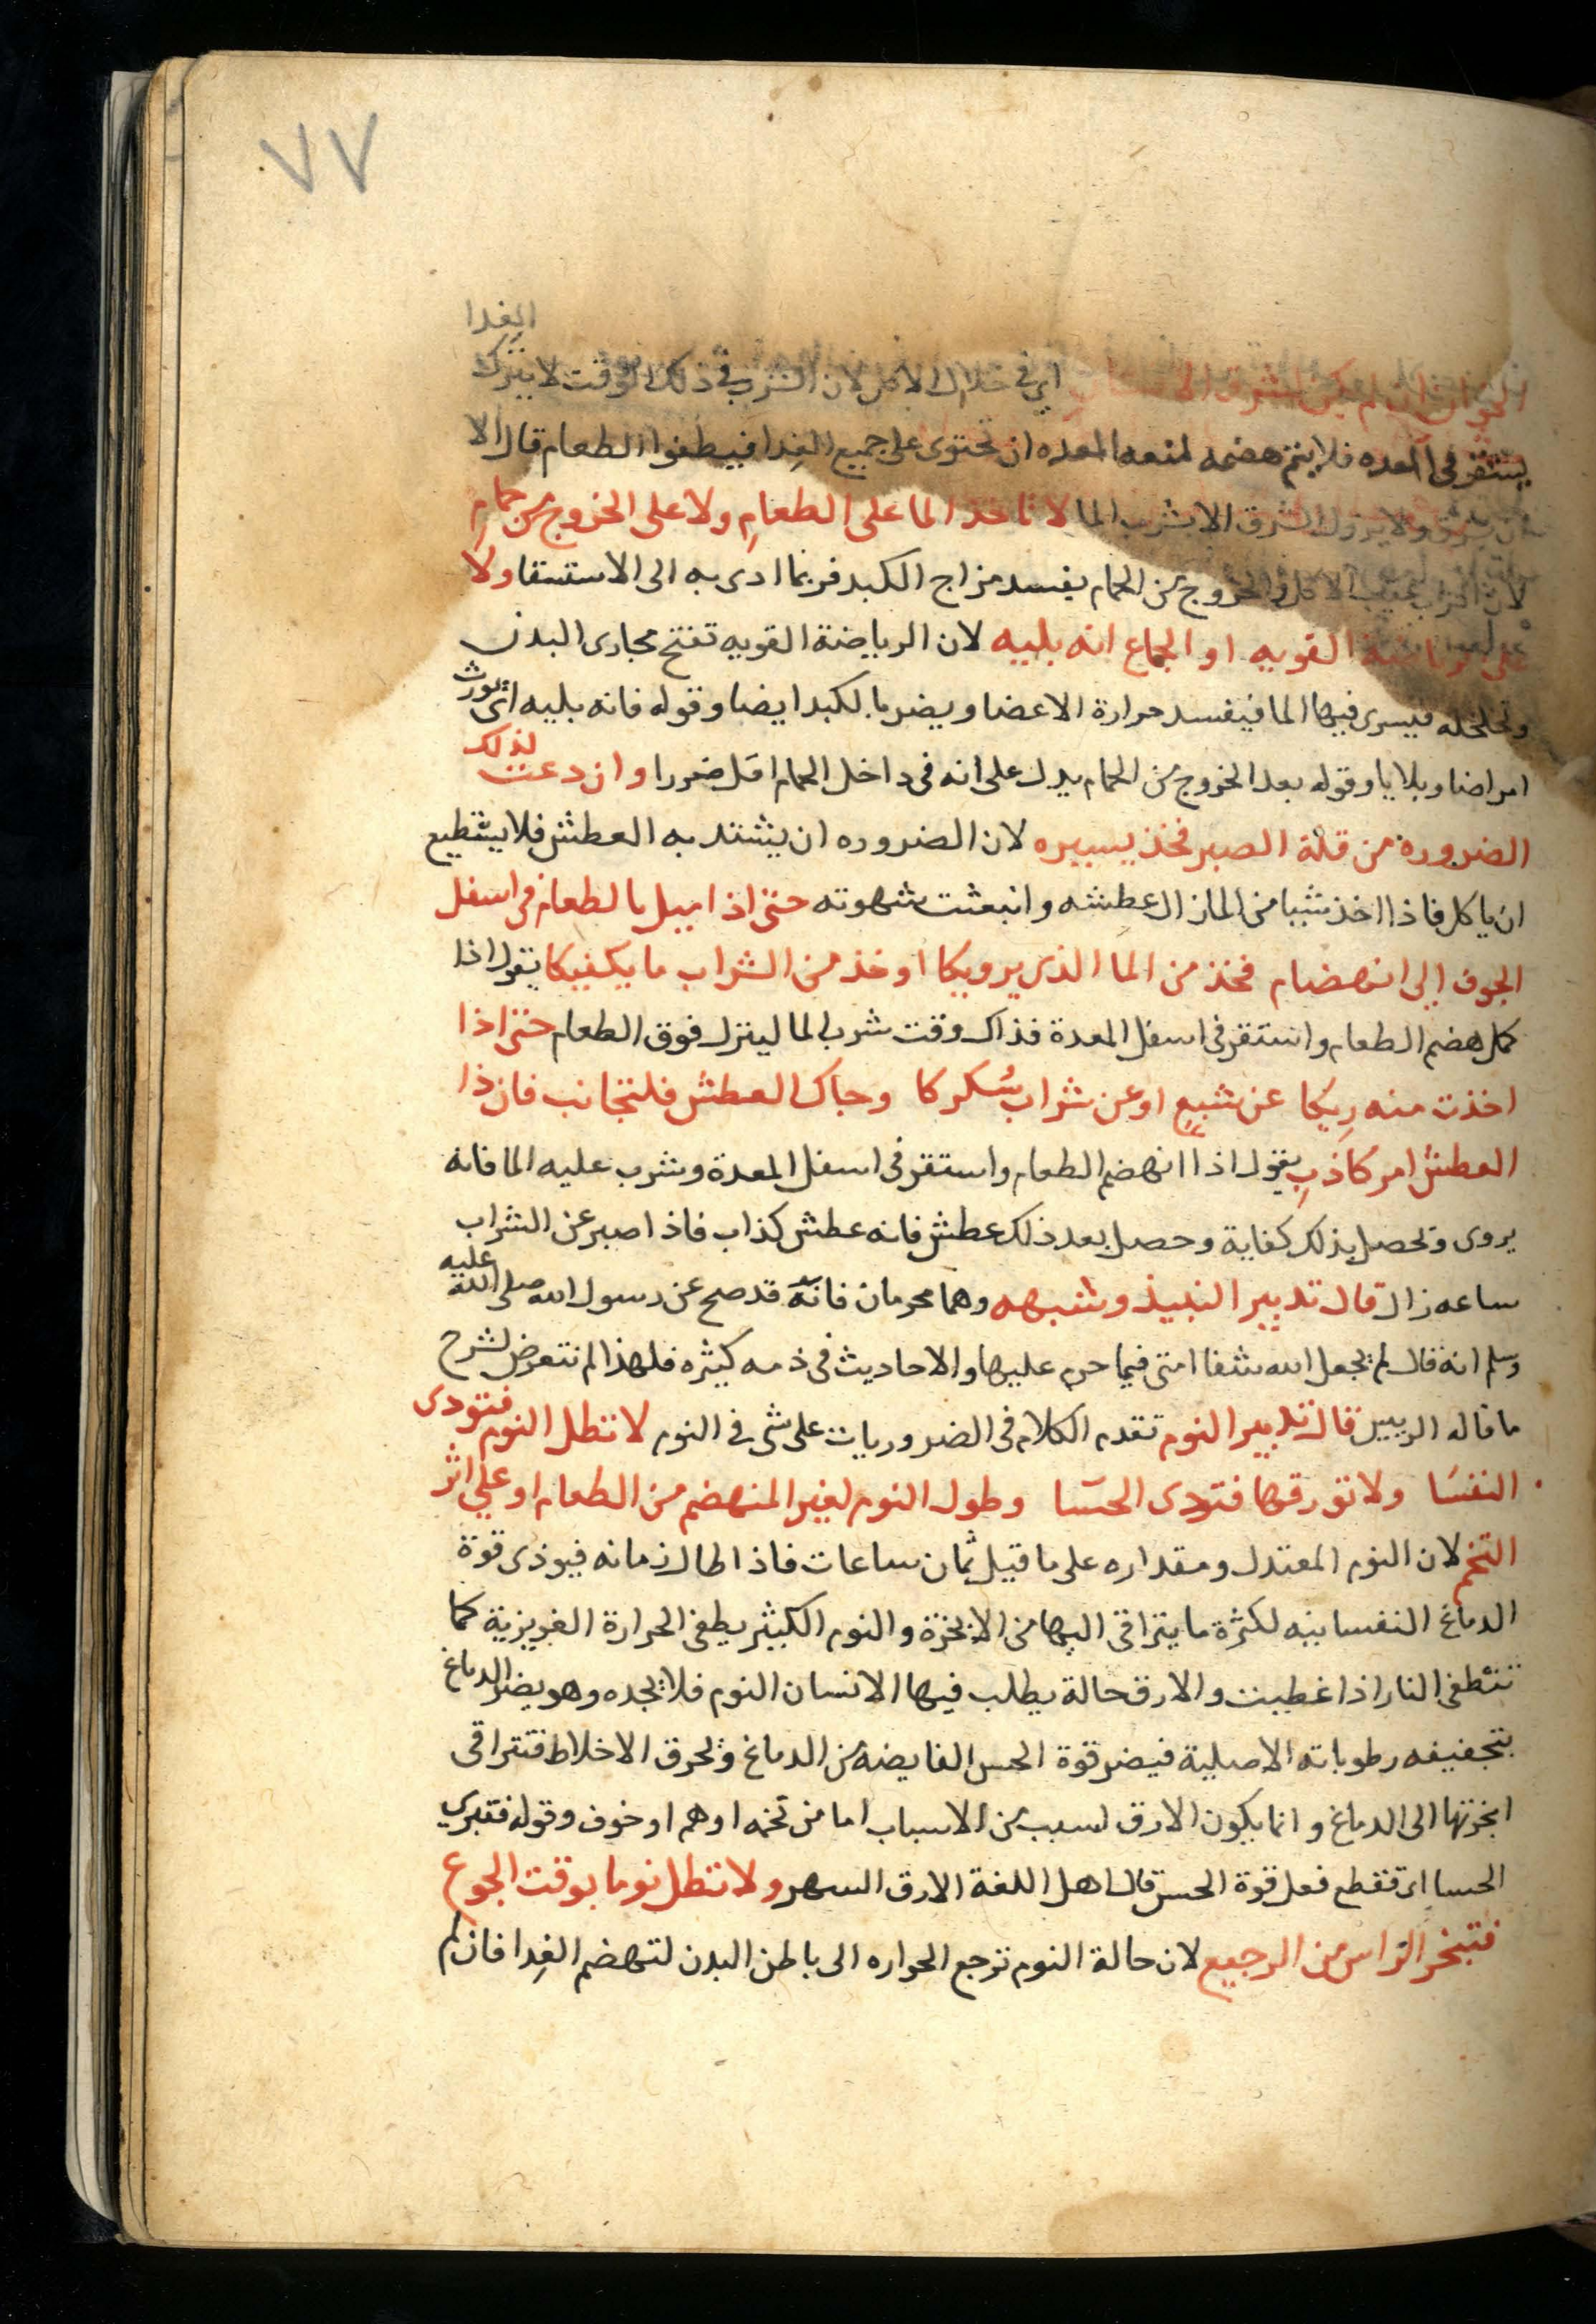 ٧٧
الغدا
الخوان ان لم يكن شرق الى اي في خلال الاكل لان الشرب في ذلك الوقت لا يترك
يستقر في المعده فلا يتم هضمه لمنعه المعده ان تحتوى على جميع الغدا فيطفوا الطعام قال الا
ان يشرق ولا يزول الشرق الا بشرب الما لا تاخذ الما على الطعامِ ولا على الخروج من حمامِ
لان الشراب عقيب الاكل والخروج من الحمام يفسد مزاج الكبد فربما ادى به الى الاستسقا ولا
على رياضة القويه او الجماع انه بليه لان الرياضة القويه تفتح مجارى البدن
وتخلخله فيسرى فيها الما فيفسد حرارة الاعضا ويضر بالكبد ايضا وقوله فانه بليه اى يورث
امراضا وبلايا وقوله بعد الخروج من الحمام يدل على انه فى داخل الحمام اقل ضررا وان دعت لذلك
الضرورة من قلة الصبر فخذ يسيره لان الضروره ان يشتد به العطش فلا يستطيع
ان ياكل فاذا اخذ شيا من الما زال عطشه وانبعثت شهوته حتى اذا ميل بالطعام فى اسفل
الجوف الى انهضام فخذ من الما الذى يرويكا او خذ من الشراب ما يكفيكا يقول اذا
كمل هضم الطعام واستقر فى اسفل المعدة فذاك وقت شرب الما لينزل فوق الطعام حتى اذا
اخذت منه رِيكا عن شبعٍ او عن شراب سُكركا وجاك العطش فلتجانب فان ذا
العطش امر كاذبِ يقول اذا انهضم الطعام واستقر فى اسفل المعدة وشرب عليه الما فانه
يروى وتحصل بذلك كفاية وحصل بعد ذلك عطش فانه عطش كذاب فاذا صبر عن الشراب
ساعه زال قال تدبير النبيذ وشبهه وهما محرمان فانه قد صح عن رسول الله صلى الله عليه
وسلم انه قال لم يجعل الله شفا امتى فيما حرم عليها والاحاديث فى ذمه كثيره فلهذا لم نتعرض لشرح
ما قاله الرييس قال تدبير النوم تقدم الكلام فى الضروريات على شى فى النوم لا تطل النوم فتودى
النفسَا ولا تورقها فتودى الحسّا وطول النوم لغير المنهضم من الطعام او على اثر
التخم لان النوم المعتدل ومقداره على ما قيل ثمان ساعات فاذا طال زمانه فيوذى قوة
الدماغ النفسانيه لكثرة ما يتراقى اليها من الابخرة والنوم الكثير يطفى الحرارة الغريزية كما
تنطفى النار اذا غطيت والارق حالة يطلب فيها الانسان النوم فلا يجده وهو يضر الدماغ
بتجفيفه رطوباته الاصلية فيضر قوة الحس الفايضه من الدماغ وتحرق الاخلاط فتتراقى
ابخرتها الى الدماغ وانما يكون الارق لسبب من الاسباب اما من تخمه او هم او خوف وقوله فتبرى
الحسا اى تقطع فعل قوة الحس قال اهل اللغة الارق السهر ولا تطل نوما بوقت الجوع
فتبخر الراس من الرجيع لان حالة النوم ترجع الحراره الى باطن البدن لتهضم الغِدا فان لم